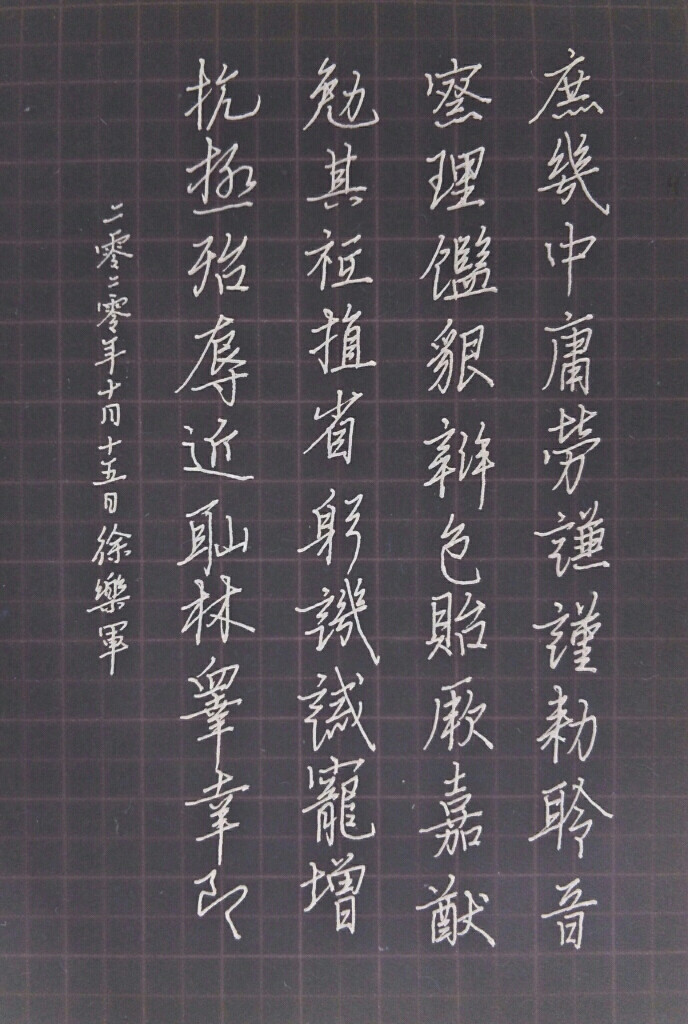 庶幾中庸勞謙謹勅聆音
察理鑑貌辨色貽厥嘉猷
勉其祗植省躬譏誡寵增
抗極殆辱近耻林皋幸即
二零二零年十月十五日徐樂軍